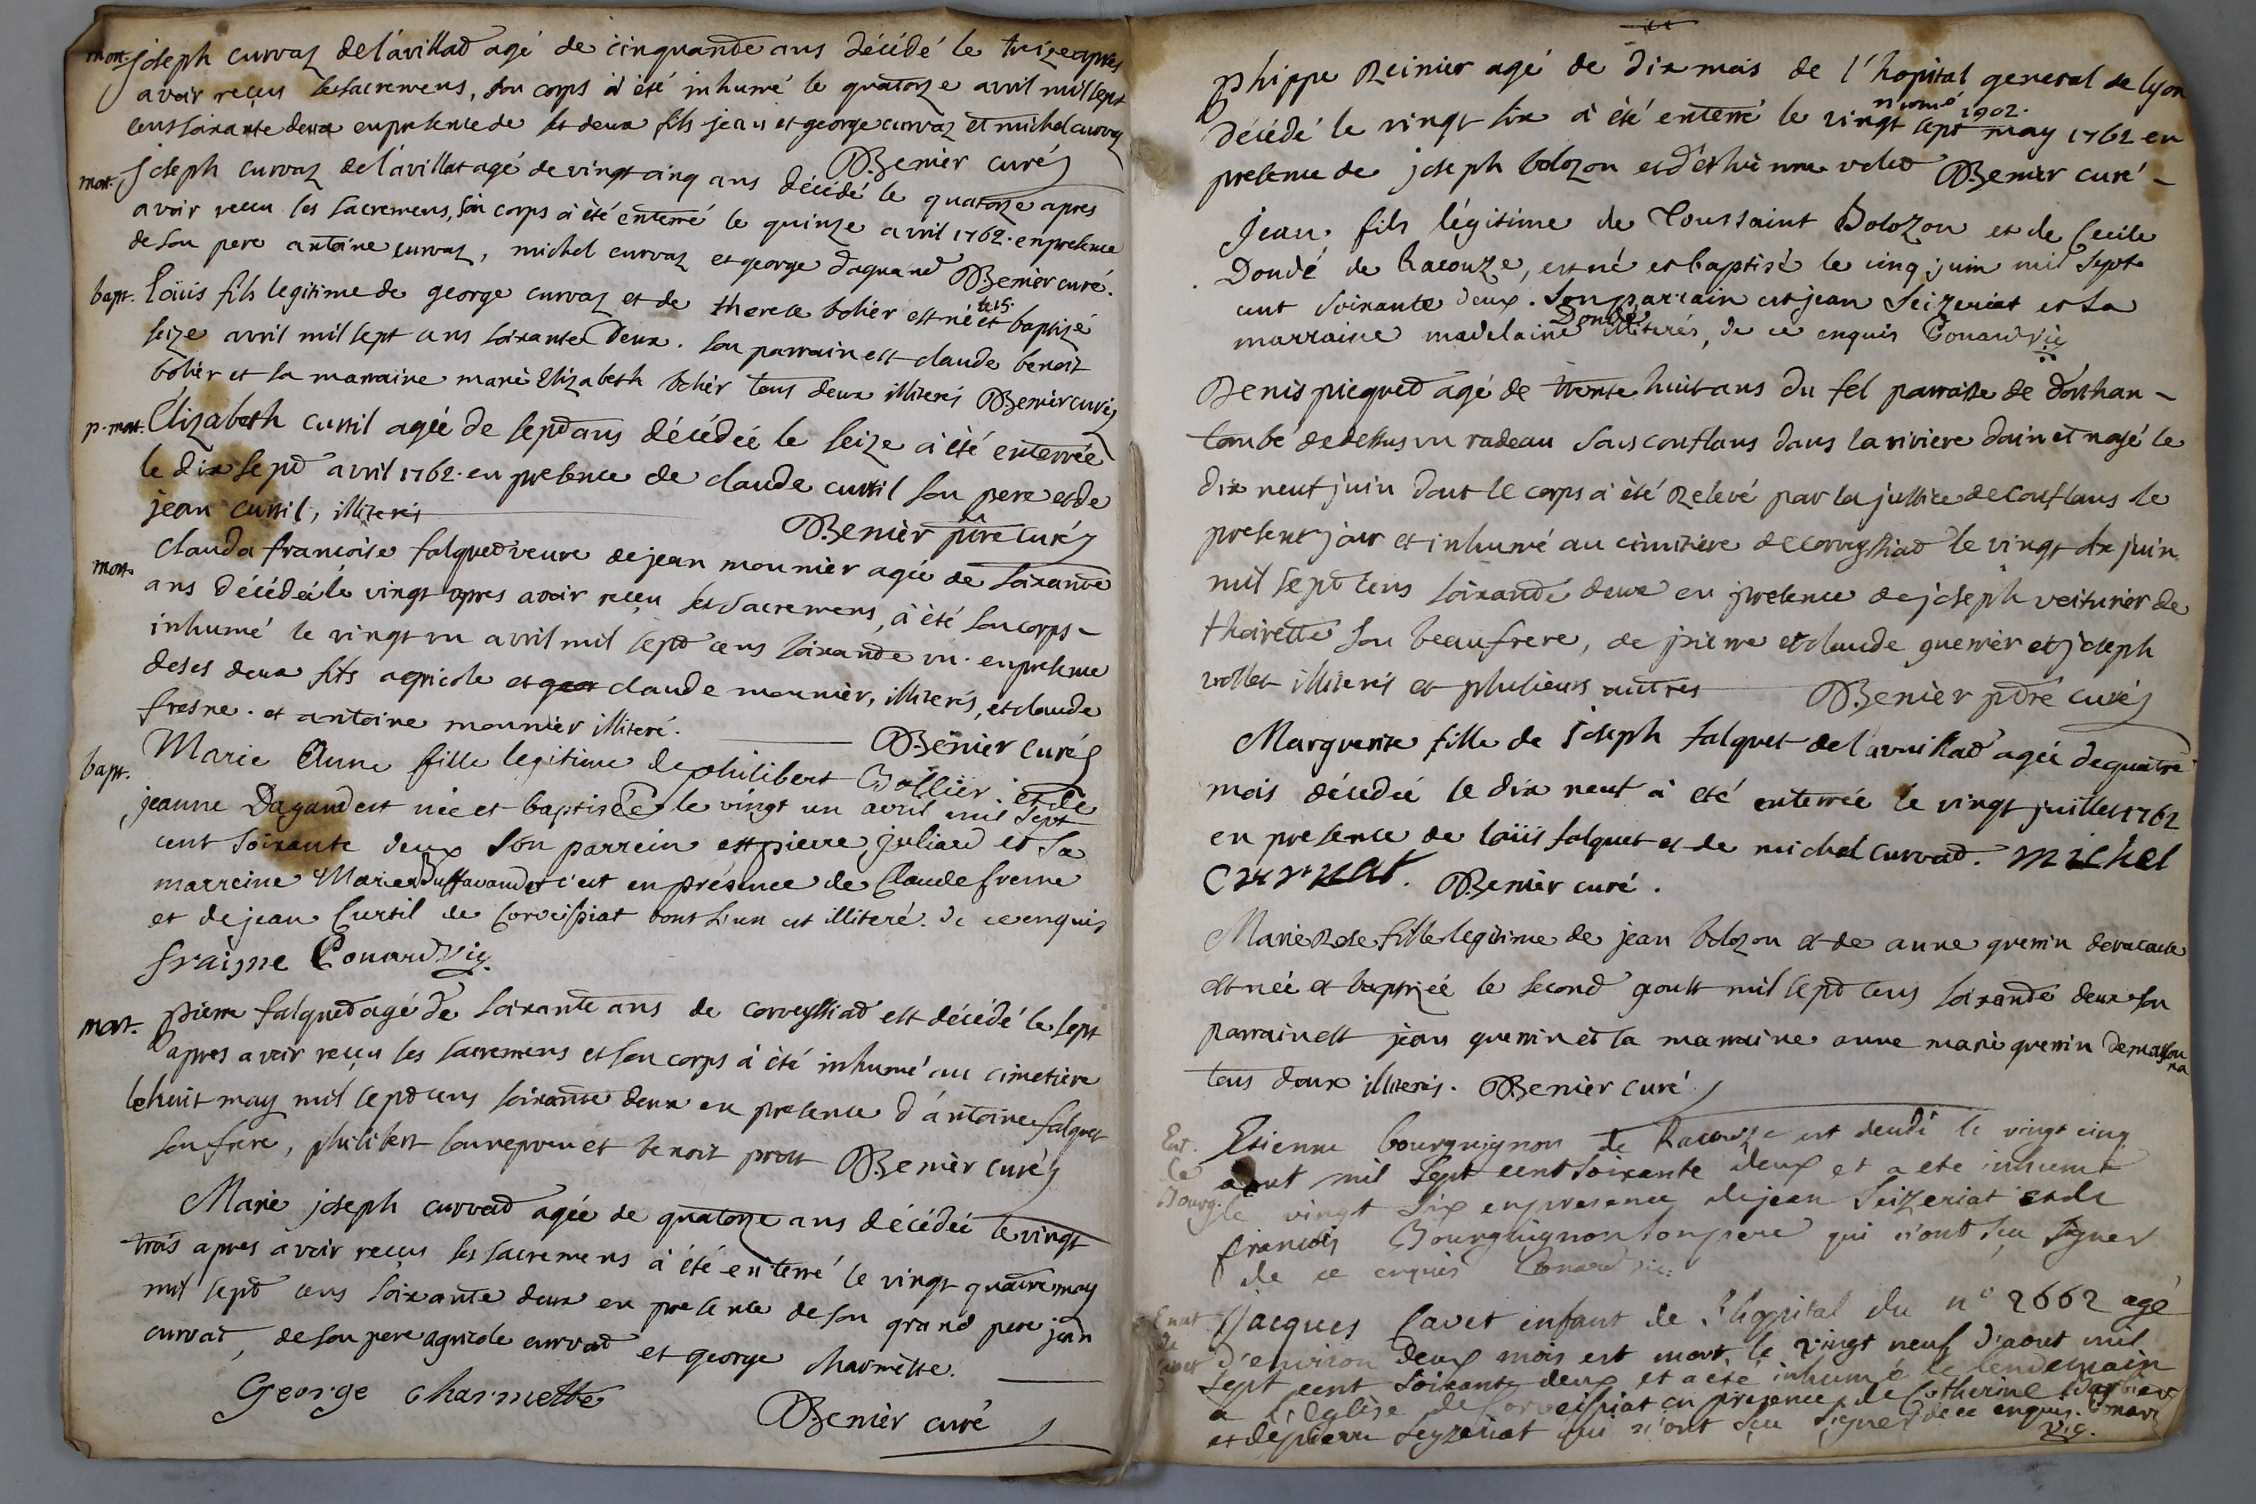 mort. joseph curvaz de l'avillad agé de cinquande ans décédé le treize apres
avoir reçus les sacremens, son corps à été inhumé le quatorze avril mil sept
cens soixante deux en presence de ses deux fils jean et george curvaz et michel curvaz
Benier curé
mort. joseph curvaz de l'avillat agé de vingt cinq ans décédé le quatorze apres
avoir reccu les sacremens, son corps à été enterré le quinze avril 1762. en presence
de son pere antoine curvaz, michel curvaz et george dagand Benier curé.
bapt. Loüis fils legitime de george curvaz et de therese bolier est né et baptizé le
seize avril mil sept cens soixante Deux. son parrain est claude benoit
bolier et sa marraine marie Elizabeth bolier tous deux illiterés Benier curé
p. mort. Elizabeth curtil agée de sept ans décédée le seize à été enterrée
le dix sept avril 1762. en presence de claude curtil son pere et de
jean curtil, illiterés Benier ptre curé
mort. clauda francoise falqued veuve de jean mounier agée de soixante
ans décédée le vingt apres avoir reçeu les sacremens, à été son corps
inhumé le vingt un avril mil sept cens soixande un. en presence
de ses deux fils agricole et claude mounier, illiterés, et claude
fresne. et antoine mounier illiteré. Benier curé
bapt. Marie Anne fille legitime de philibert Bollier et de
jeanne Dagand est née et baptisée le vingt un avril mil sept
cent soixante deux son parrein est pierre juliard et sa
marreine Marie Duffavand et c'est en présence de Claude freine
et de jean Curtil de Corveissiat dont l'un est illiteré. de ce enquis
fraisne Conard Vic.
mort. pierre falqued agé de soixante ans de corveyssiad est décédé le sept
apres avoir reçeu les sacremens et son corps à été inhumé au cimetiere
le huit may mil sept cens soixante deux en presence d'antoine falquet
son frere, philibert son nepveu et benoit prost Benier curé
Marie joseph curvad agée de quatorze ans décédée le vingt
trois apres avoir reçus les sacremens à été enterré le vingt quatre may
mil sept cens soixante deux en presence de son grand pere jean
curvat, de son pere agricole curvad et george charmette.
George charmette
Benier curé
phippe Reinier agé de dix mois de l'hopital general de lyon
numé 1902.
décédé le vingt six à été enterré le vingt sept may 1762 en
presence de joseph bolozon et d'ethienne volet Benier curé
Jean fils légitime de Toussaint Bolozon et de Cecile
Dondé de Racouze, est né et baptisé le cinq juin mil sept
cent soixante deux. son parrain est jean Seizeriat et sa
marraine madelaine Dondé illiterés, de ce enquis Conard Vic
Denis picqued agé de trente huit ans du fel parroisse de dorthan
tombé de dessus un radeau sous conflans dans la riviere dain et nojé le
dix neuf juin dont le corps à été Relevé par la justice de Conflans le
present jour et inhumé au cimitiere de corveyssiad le vingt dx juin
mil sept cens soixande deux en presence de joseph voiturier de
thoirette son beaufrere, de pierre et claude guerrier et joseph
vollet illiterés et plusieurs autres Benier ptre curé
Marguerite fille de joseph falquet de l'avuillad agée de quatre
mois décédée le dix neuf à été enterrée le vingt juillet 1762
en presence de loüis falquet et de michel curvad. Michel
Curvat. Benier curé.
Marie Rose fille legitime de jean bolozon et de anne guerrin de racouze
est née et baptizée le second aoust mil sept cens soixande deux son
parrain est jean guerrin et sa marraine anne marie guerrin de massonna
tous deux illiterés. Benier curé
Ent. de Bourg. Etienne bourguignon de Racouze est decedé le vingt cinq
aout mil sept cent soixante deux et a eté inhumé
le vingt six en presence de jean Seizeriat et de
francois Bourguignon son pere qui n'ont sçu signer
de ce enquis Conard Vic.
Ent. de Cavet Jacques Cavet enfant de l'hopital du n° 2662 agé
d'environ deux mois est mort le vingt neuf d'aout mil
sept cent soixante deux et a eté inhumé le lendemain
a l'Eglise de Corveissiat en presence de Catherine Barbier
et de pierre Seyzeriat qui n'ont sçu signer de ce enquis. Conard
Vic.